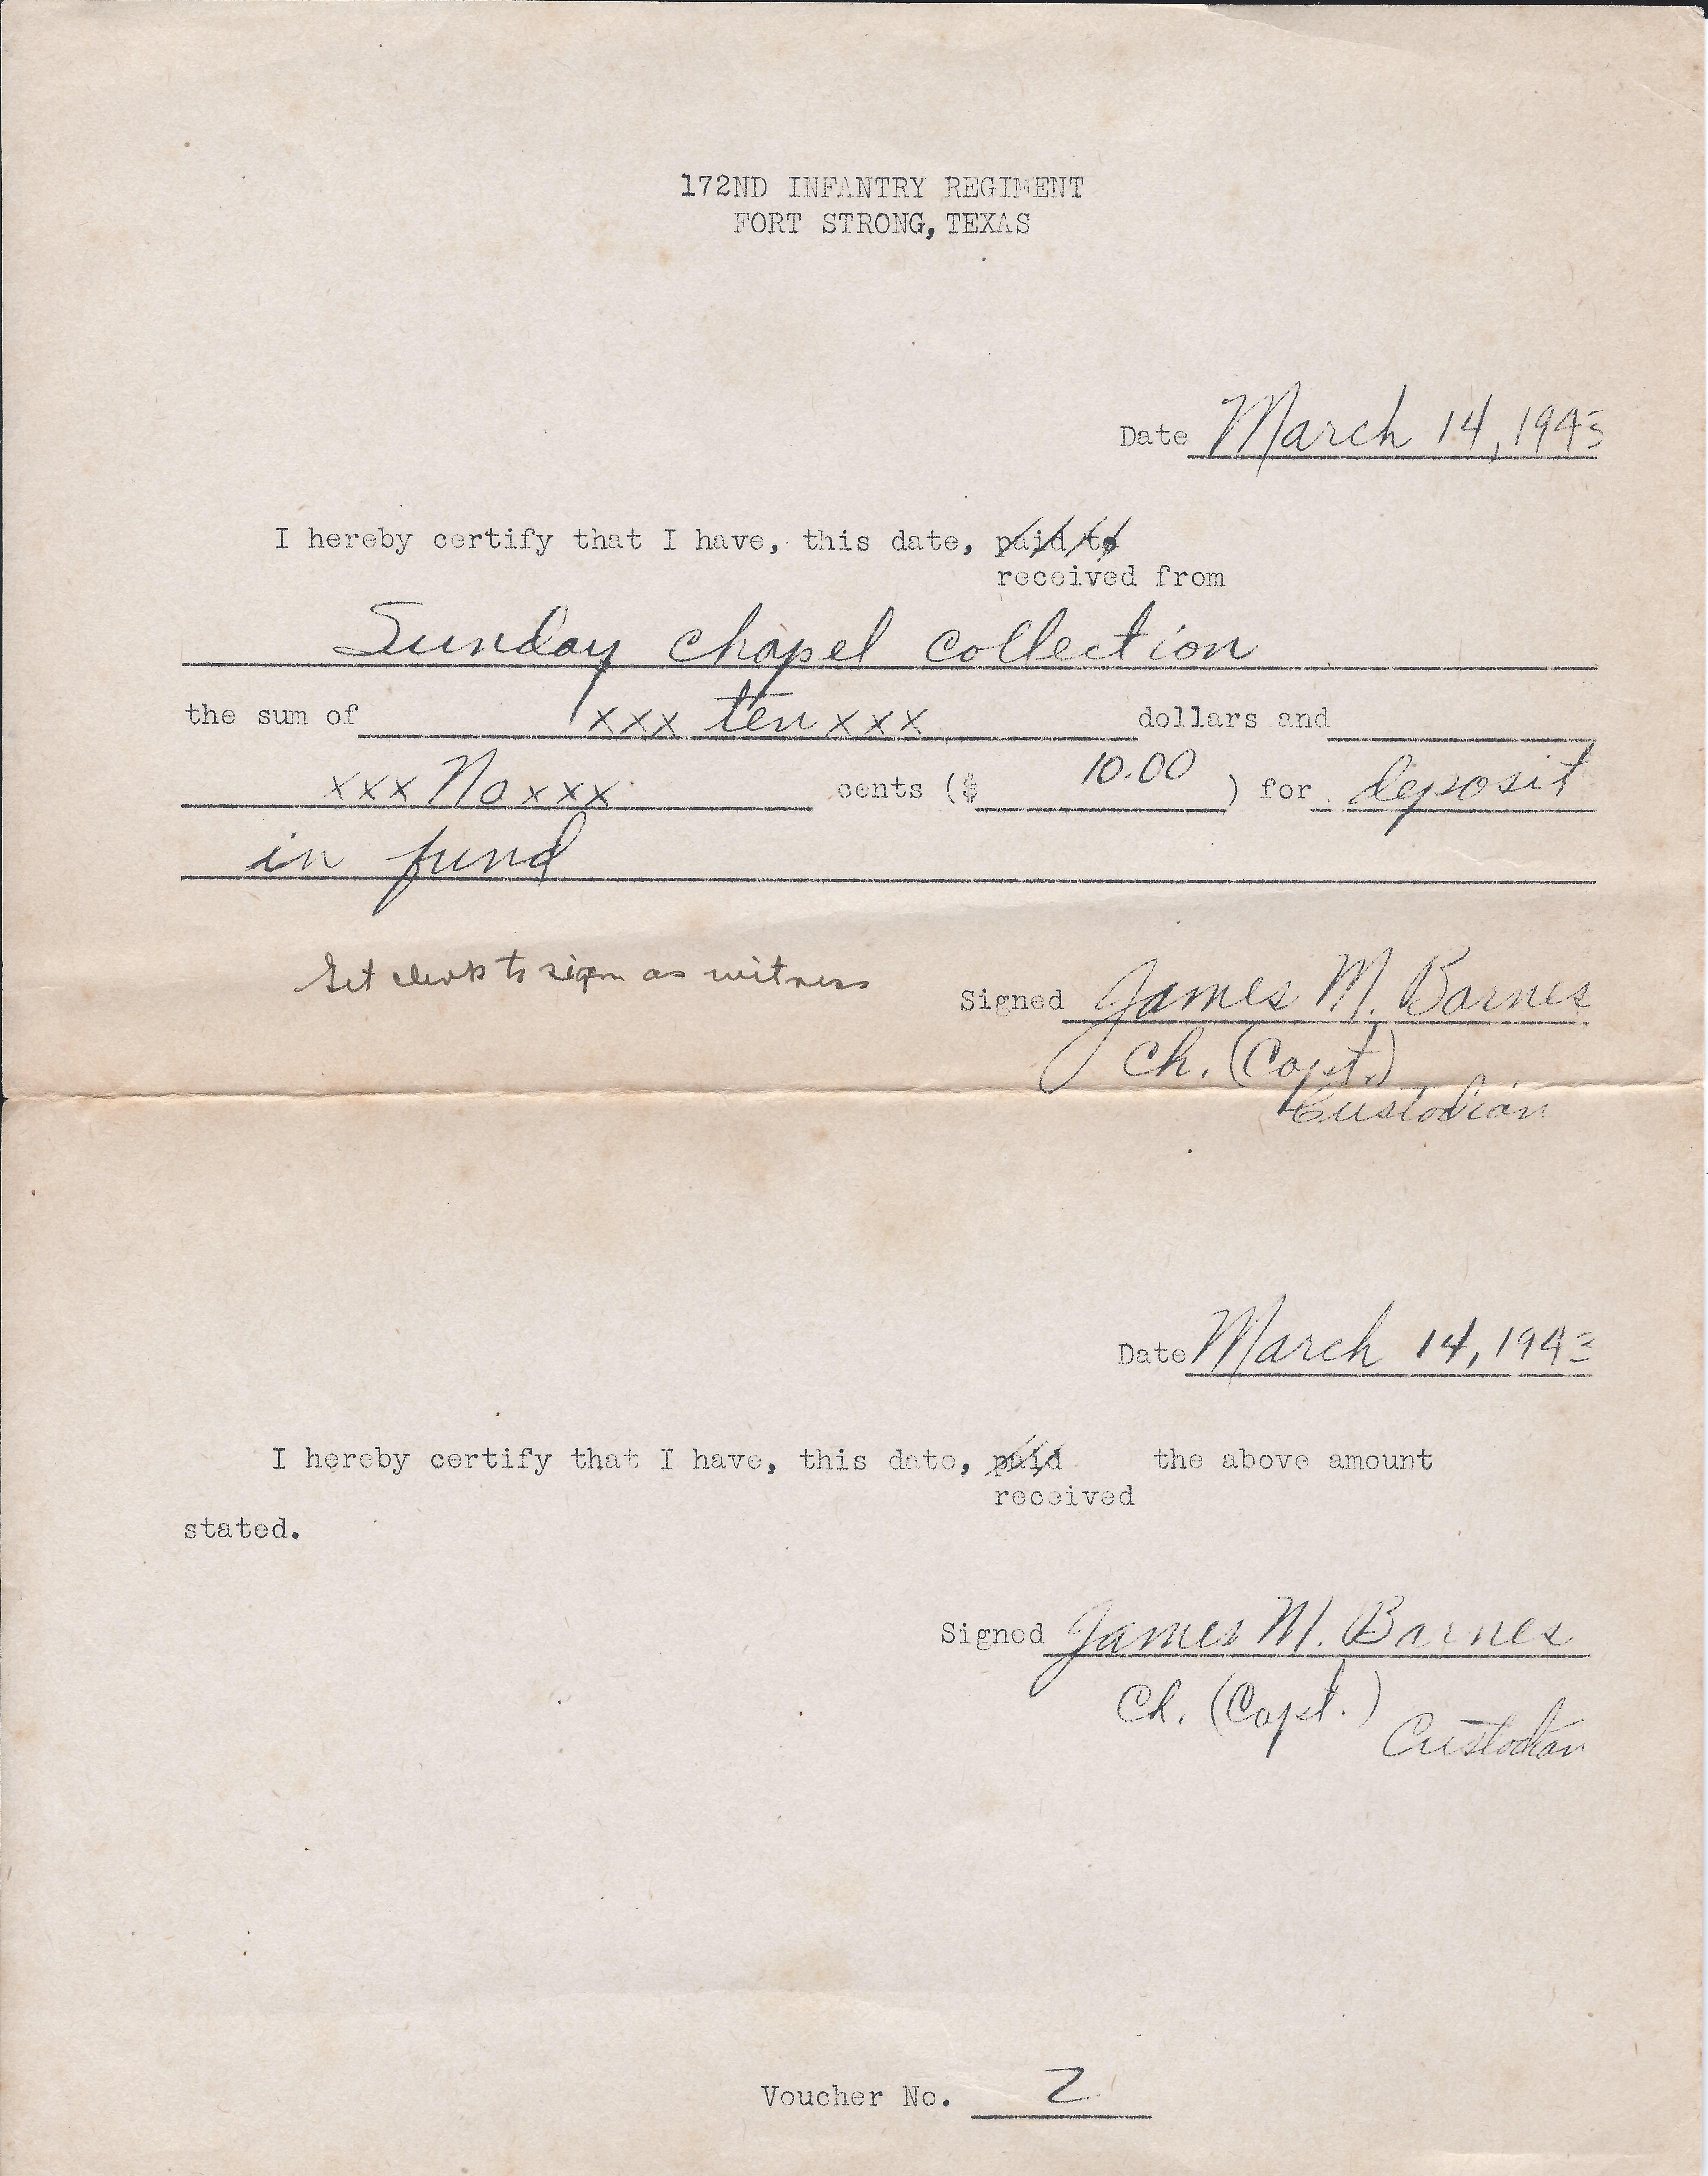 172ND INFANTRY REGIMENT
FORT STRONG, TEXAS
Date March 14, 1943
I hereby certify that I have, this date, paid to
received from
Sunday chapel collection
the sum of xxx ten xxx dollars and
xxx No xxx cents ($ 10.00 ) for deposit
in fund
Get clerk to sign as witness
Signed James M. Barnes
Ch. (Capt.)
Custodian
Date March 14, 1943
I hereby certify that I have, this date, paid the above amount
received
stated.
Signed James M. Barnes
Ch. (Capt.)
Custodian
Voucher No. 2